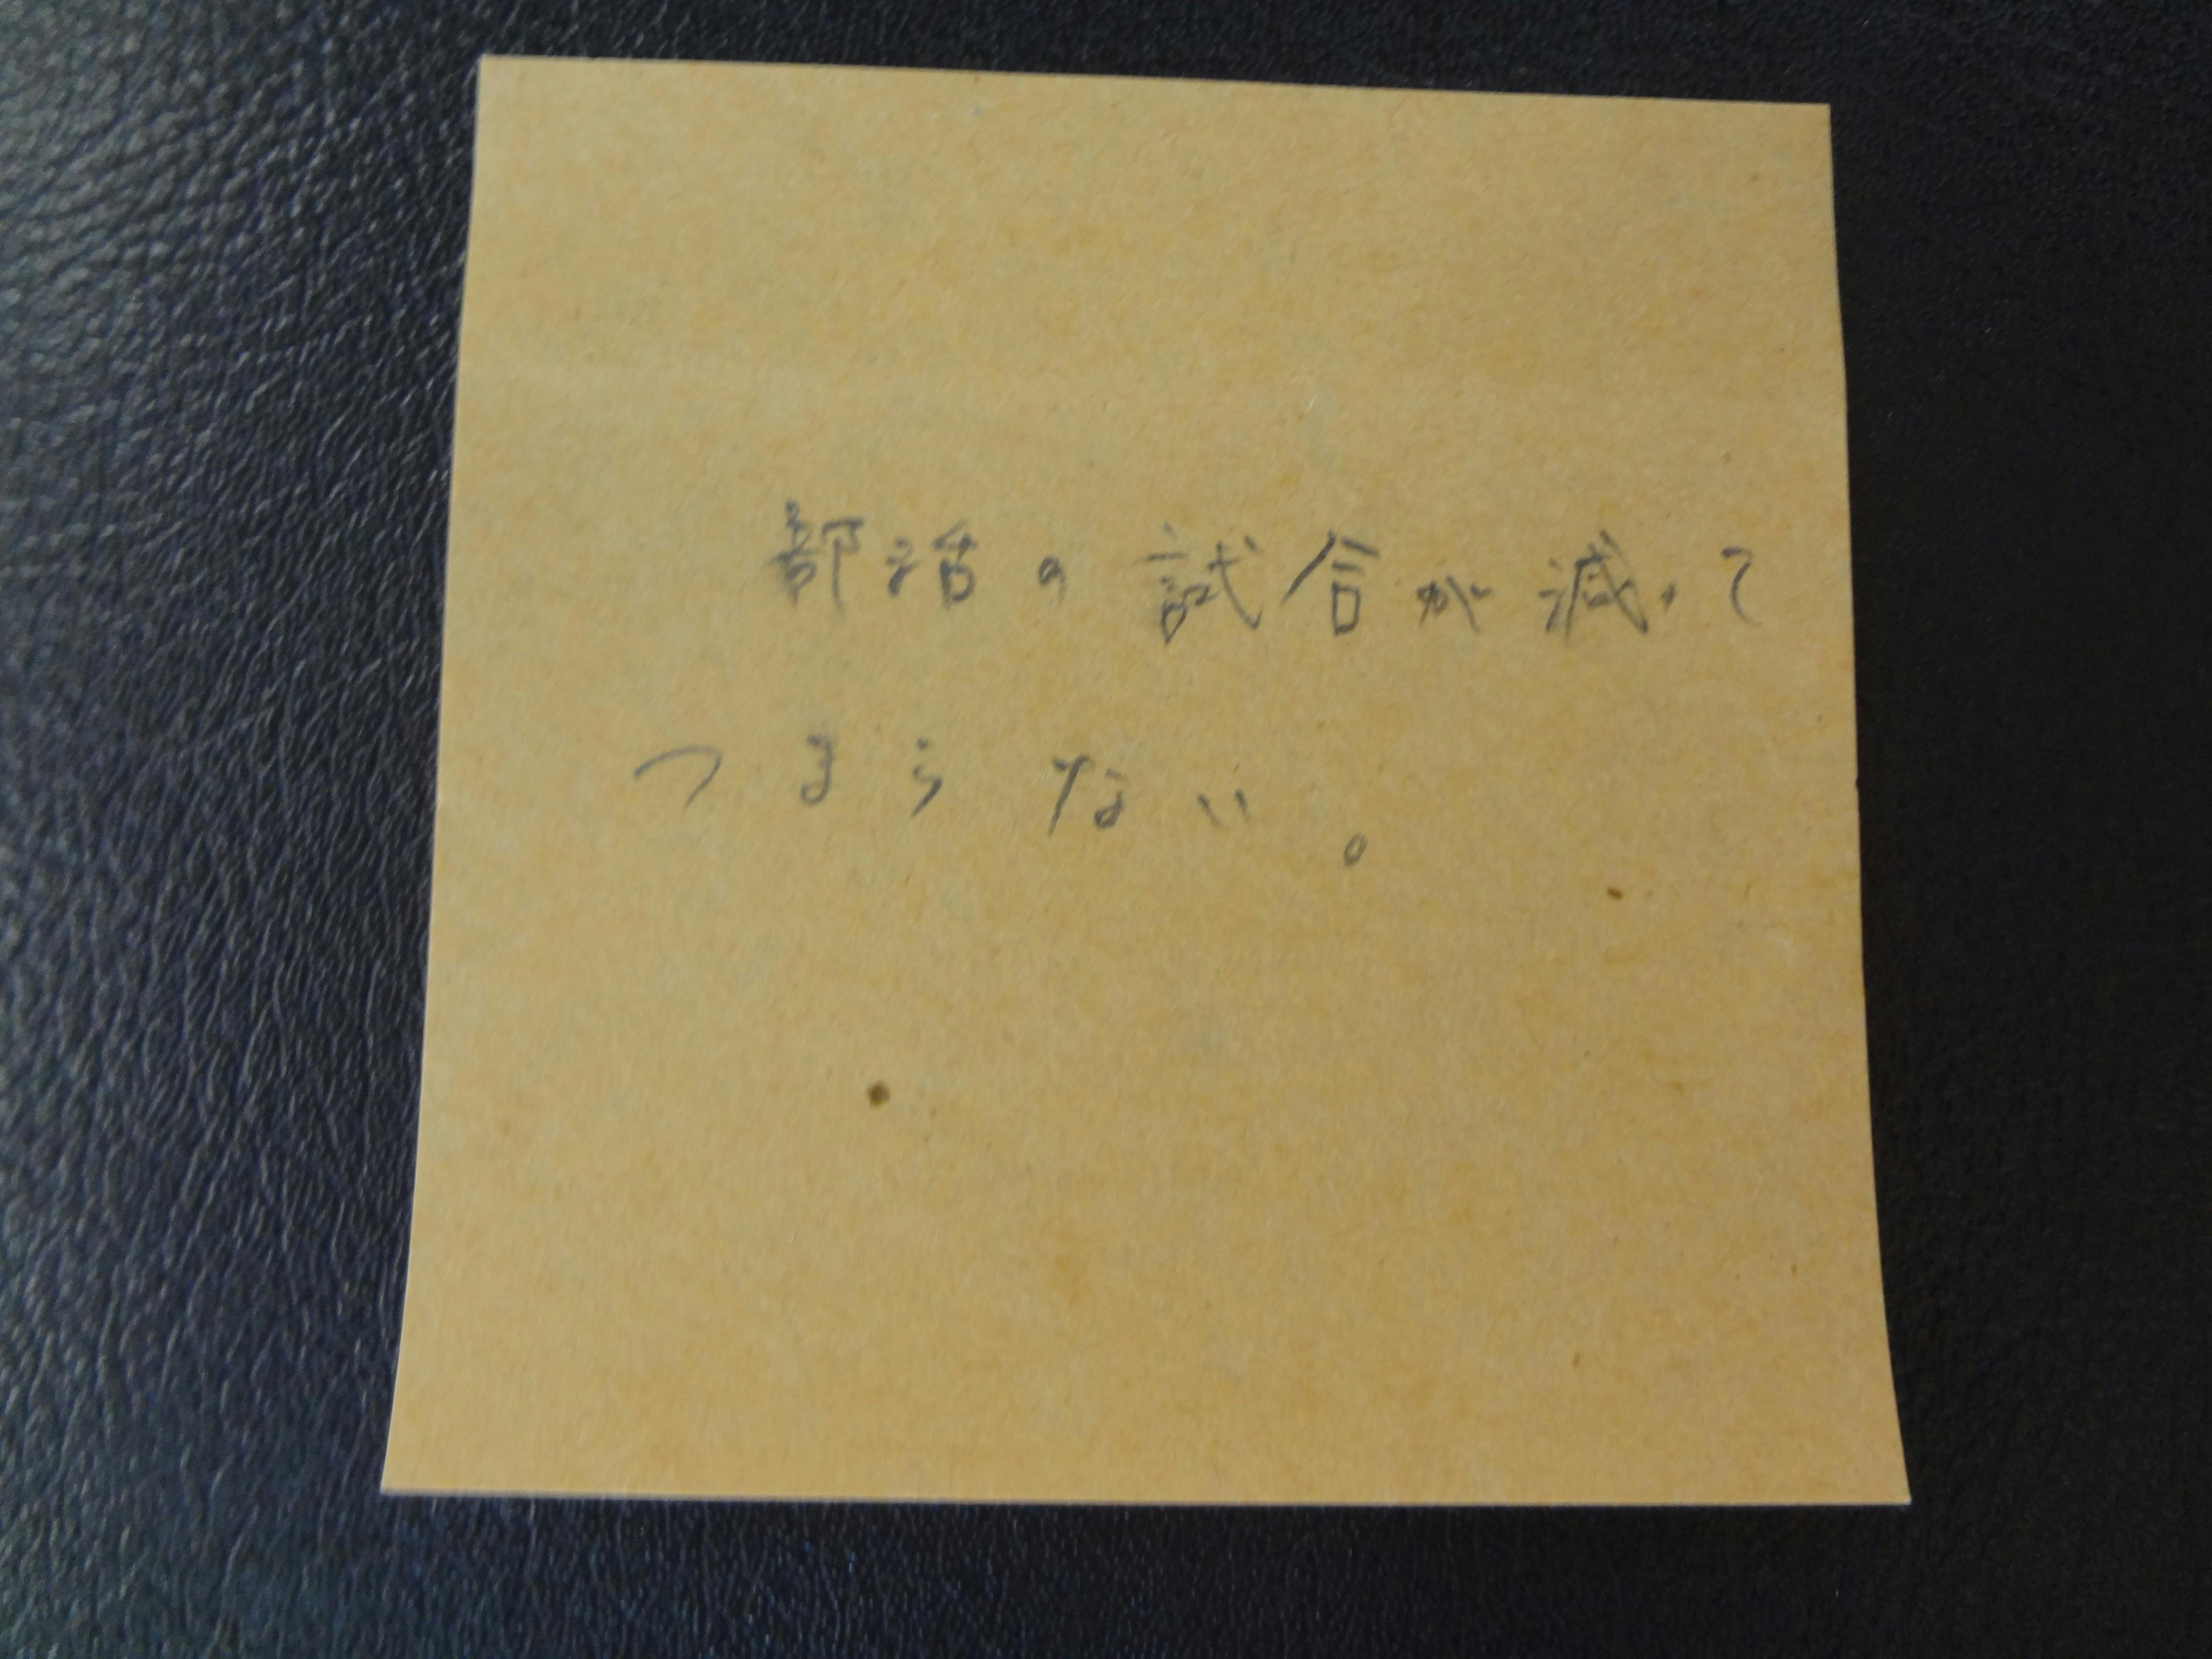 部活の試合が減って
つまらない。